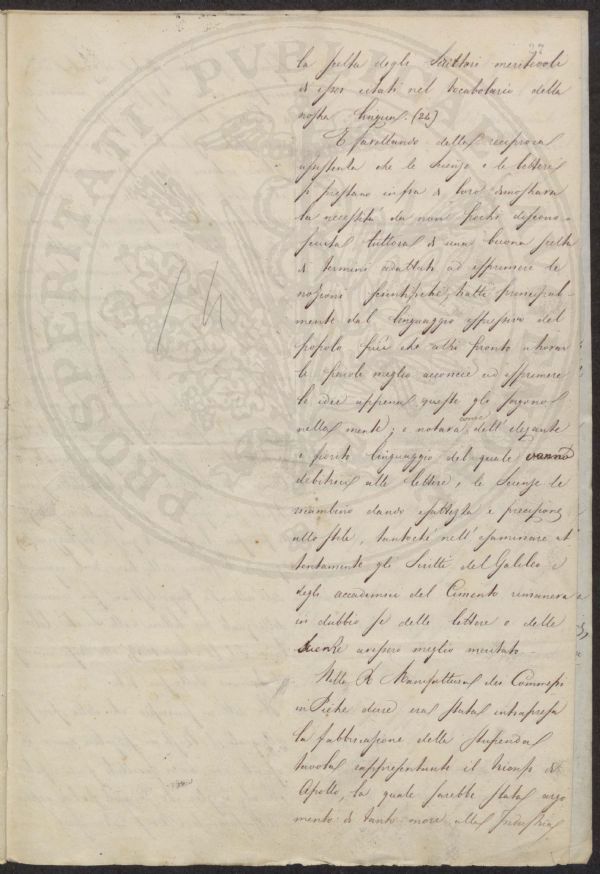 la scelta degli Scrittori meritevoli
di esser citati nel Vocabolario della
nostra lingua. (24)
E favellando della reciproca
assistenza che le Scienze e le lettere
si prestano infra di loro dimostrava
la necessità da non pochi discono-
sciuta tuttora di una buona scelta
di termini adattati ad esprimere le
nozioni scientifiche, tratti principal-
mente dal linguaggio espressivo del
popolo più che altri pronto a trovar
le parole meglio acconcie ad esprimere
le idee appena queste gli sorgono
nella mente; e notava come dell'elegante
e fiorito linguaggio del quale vanno
debitrici alle lettere, le Scienze le
ricambino dando esattezza e precisione
allo stile, tantochè nell'esaminare at
tentamente gli Scritti del Galileo e
degli accademici del Cimento rimaneva
in dubbio se delle lettere o delle
Scienze avessero meglio meritato.
Nella R. Manifattura dei Commessi
in Pietre dure era stata intrapresa
la fabbricazione della stupenda
tavola rappresentante il trionfo di
Apollo, la quale sarebbe stata argo
mento di tanto onore alla Industria
PROSPERITATI PUBLICAE